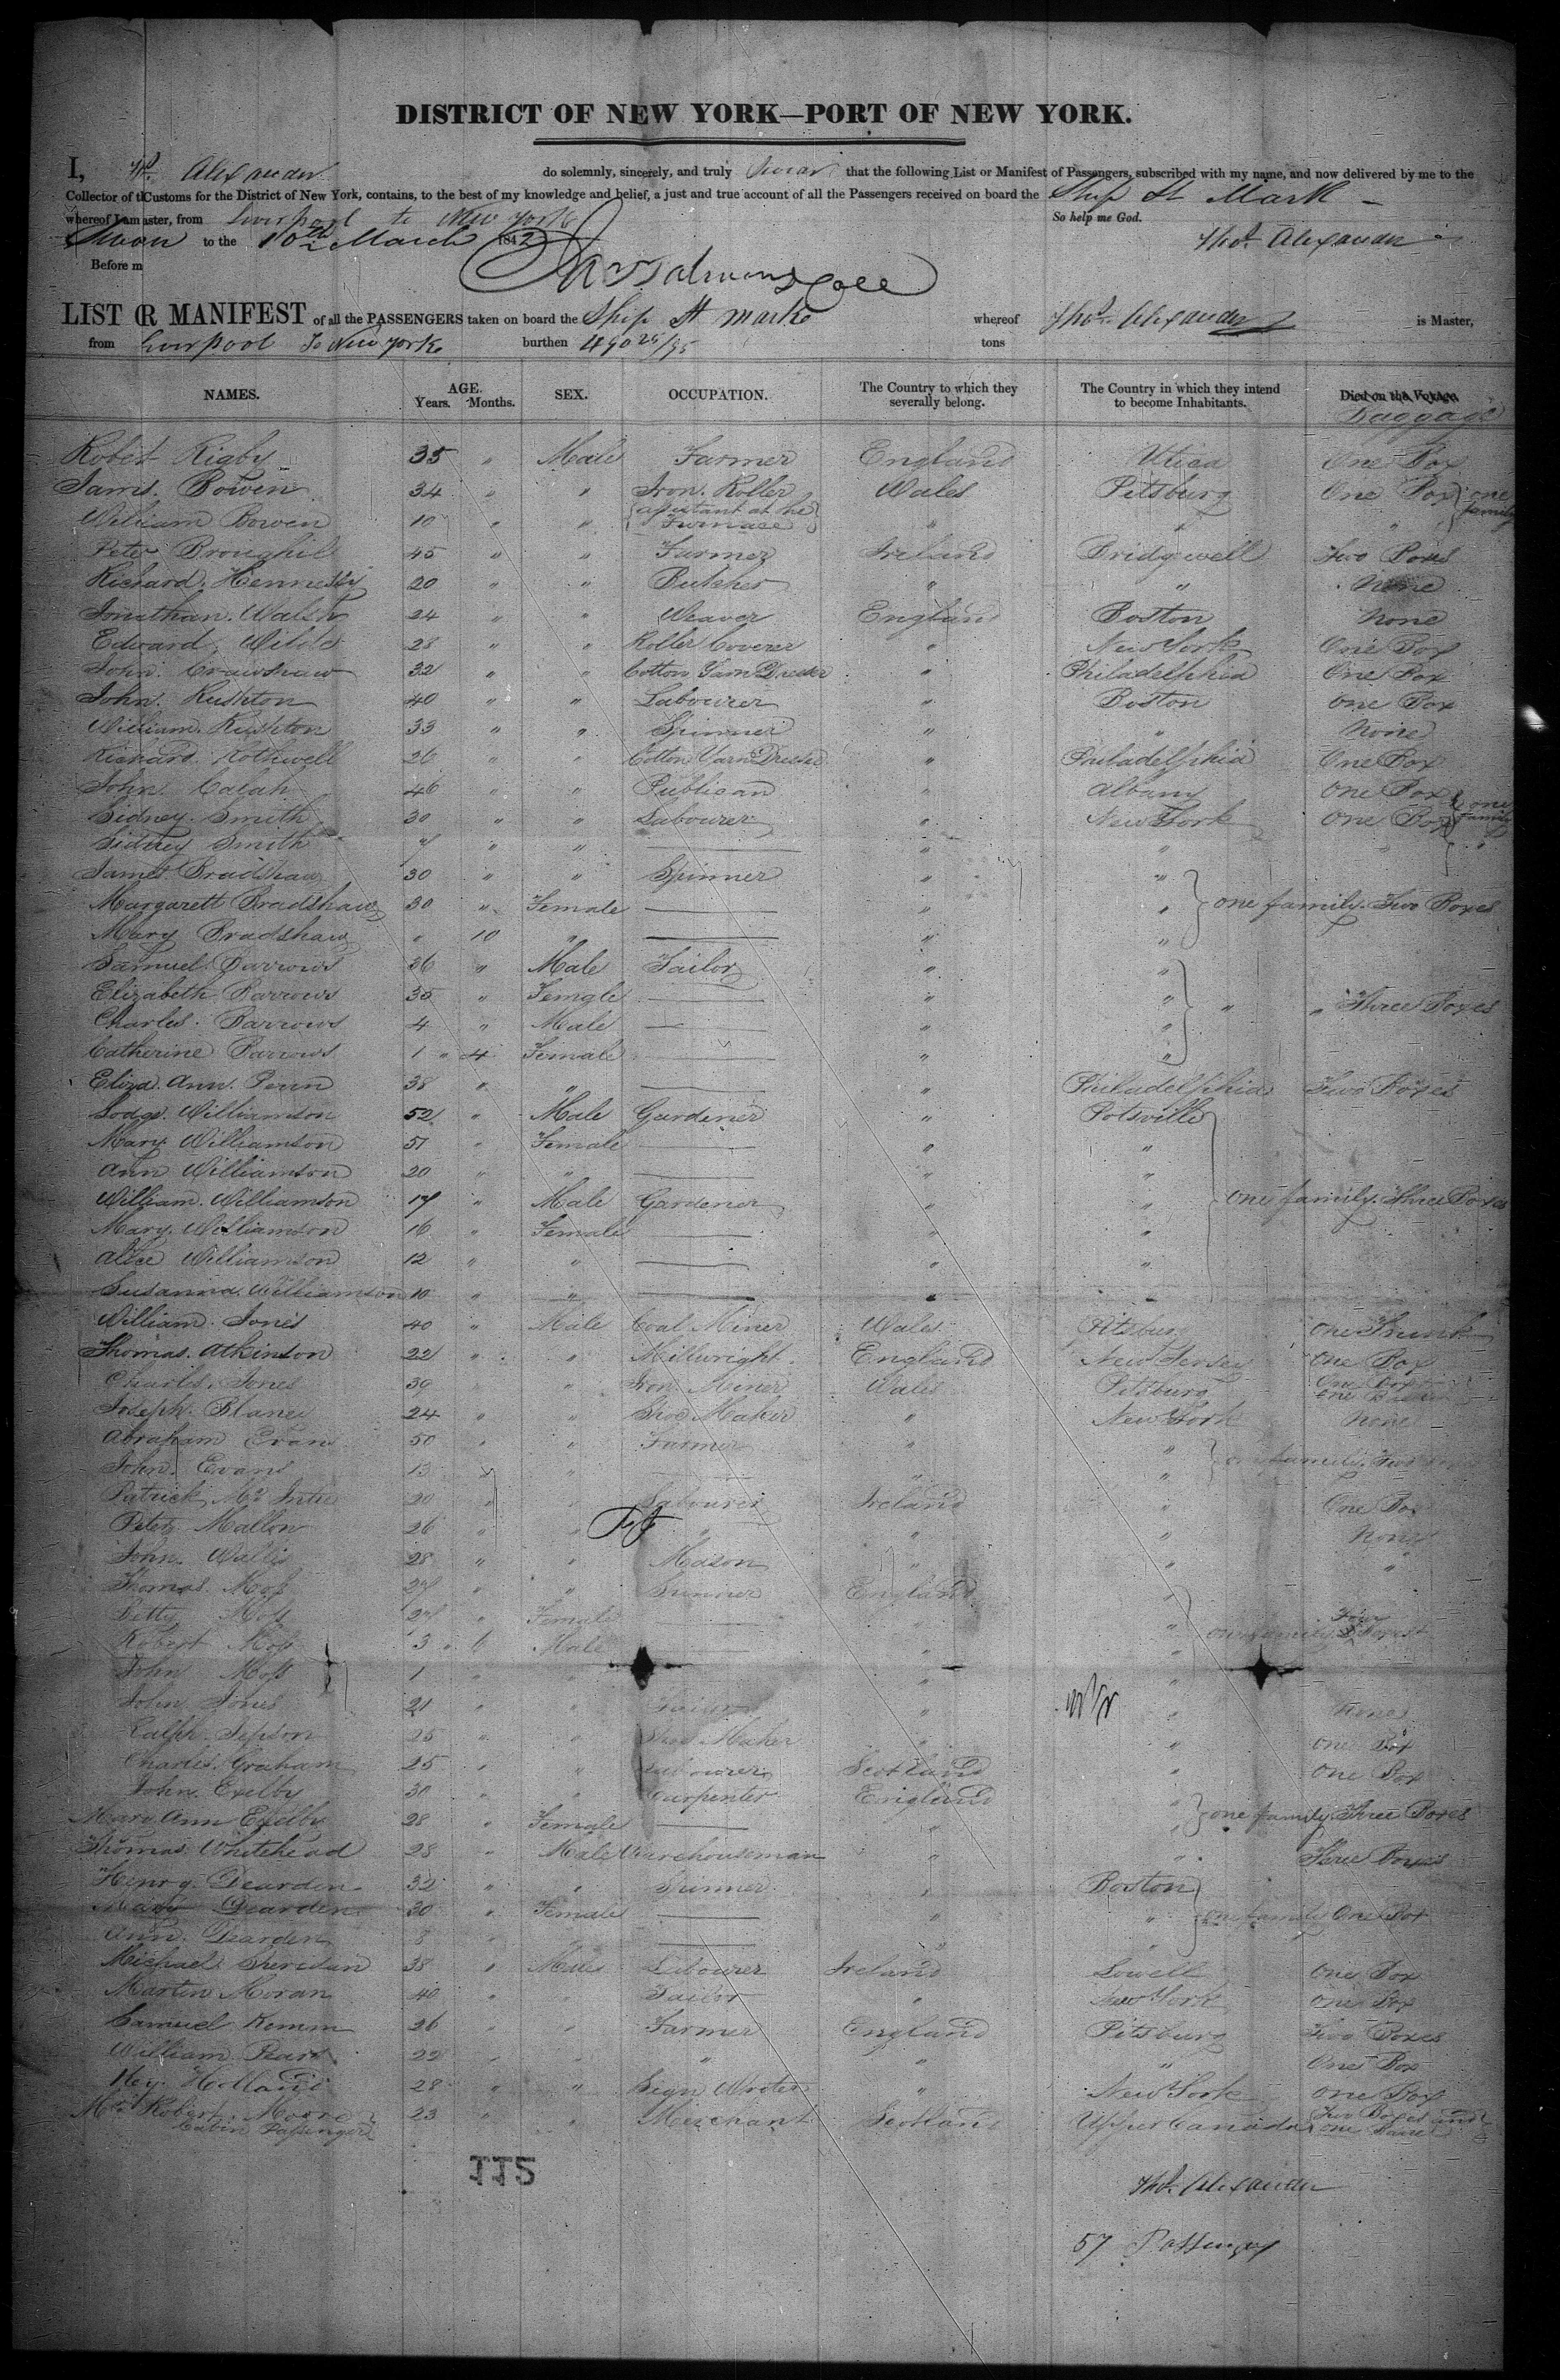 DISTRICT OF NEW YORK—PORT OF NEW YORK.
I, Alexander do solemnly, sincerely, and truly Swear that the following List or Manifest of Passengers, subscribed with my name, and now delivered by me to the
Collector of the Customs for the District of New York, contains, to the best of my knowledge and belief, a just and true account of all the Passengers received on board the Ship St Mark
whereof I am master, from Liverpool to New York So help me God.
Sworn to the 10th March 1842 Thos. Alexander
Before m
LIST OR MANIFEST of all the PASSENGERS taken on board the Ship St Marks whereof Thos. Alexander is Master,
from Liverpool To New York burthen 490 25/95 tons
NAMES. AGE. Years. Months. SEX. OCCUPATION. The Country to which they severally belong. The Country in which they intend to become Inhabitants. Died on the Voyage.
Baggage
Robert Rigby 35 " Male Farmer England Utica One Box
James. Bowen 34 " " Iron. Roller Wales Pitsburg One Box } one family
William Bowen 10 " " { at the Furnace } " " "
Peter Broughil 45 " " Farmer Ireland Bridgwell Two Boxes
Richard. Hennessy 20 " " Butcher " " None
Jonathan. Walsh 24 " " Weaver England Boston None
Edward. Wilde 28 " " Roller Coverer " New York One Box
John. Crawshaw 32 " " Cotton Yarn Dresser " Philadelphia One Box
John. Rushton 40 " " Labourer " Boston One Box
William. Rushton 33 " " Spinner " " None
Richard. Rothwell 26 " " Cotton Yarn Dresser " Philadelphia One Box
John. 46 " " Publican " Albany One Box
Sidney. Smith 30 " " Labourer " New York One Box } one family
Sidney Smith 7 " " — " " "
James. Bradshaw 30 " " Spinner " "
Margarett Bradshaw 30 " Female — " " } one family. Two Boxes
Mary Bradshaw " 10 " — " "
Samuel. Barrows 36 " Male Tailor " "
Elizabeth. Barrows 35 " Female — " " } " " Three Boxes
Charles. Barrows 4 " Male — " "
Catherine Barrows 1 " 4 Female — " "
Eliza. Ann. 38 " " — " Philadelphia Two Boxes
Williamson 52 " Male Gardener " Potsville
Mary Williamson 51 " Female — " "
Ann Williamson 20 " " — " "
William. Williamson 17 " Male Gardener " " } One family. Three Boxes
Mary. Williamson 16 " Female — " "
Alice Williamson 12 " " — " "
Susanna. Williamson 10 " " — " "
William. Jones 40 " Male Coal Miner Wales Pitsburg One Trunk
Thomas. Atkinson 22 " " Millwright. England New Jersey One Box
Charles. Jones 39 " " Iron Miner Wales Pitsburg One Box One
Joseph. Blaney 24 " " Shoe Maker " New York None
Abraham Evans 50 " " Farmer " " } one family. Two
John. Evans 13 " " — " "
Patrick. 20 " " Labourer Ireland " One Box
Peter Mallon 26 " " " " " None
John. 28 " " Mason " " "
Thomas. Moss 27 " " Spinner England "
Betty Moss 27 " Female — " " } one family Four
Robert Moss 3 " 6 Male — " "
John Moss 1 " " "
John Jones 21 " " " " None
Ralph. Jepson 25 " " Shoe Maker " " One Box
Charles. Graham 25 " " Labourer Scotland " One Box
John. Exelby 30 " " Carpenter England "
Mary Ann Exelby 28 " Female — " " } one family. Three Boxes
Thomas Whitehead 28 " Male Warehouseman " " Three Boxes
Henry Dearden 32 " " Spinner " Boston
Mary Dearden 30 " Female — " " } one family One Box
Ann. Dearden 8 " " — " "
Michael. Sheridan 38 " Male Labourer Ireland Lowell One Box
Martin Moran 40 " " Tailor " New York One Box
Samuel 26 " " Farmer England Pitsburg Two Boxes
William 22 " " " " " One Box
Holland 28 " " Sign Writer " New York One Box
Robert. Moore 23 " " Merchant Scotland Upper Canada Two Boxes and one
Cabin Passenger
112
Thos. Alexander
57 Passengers